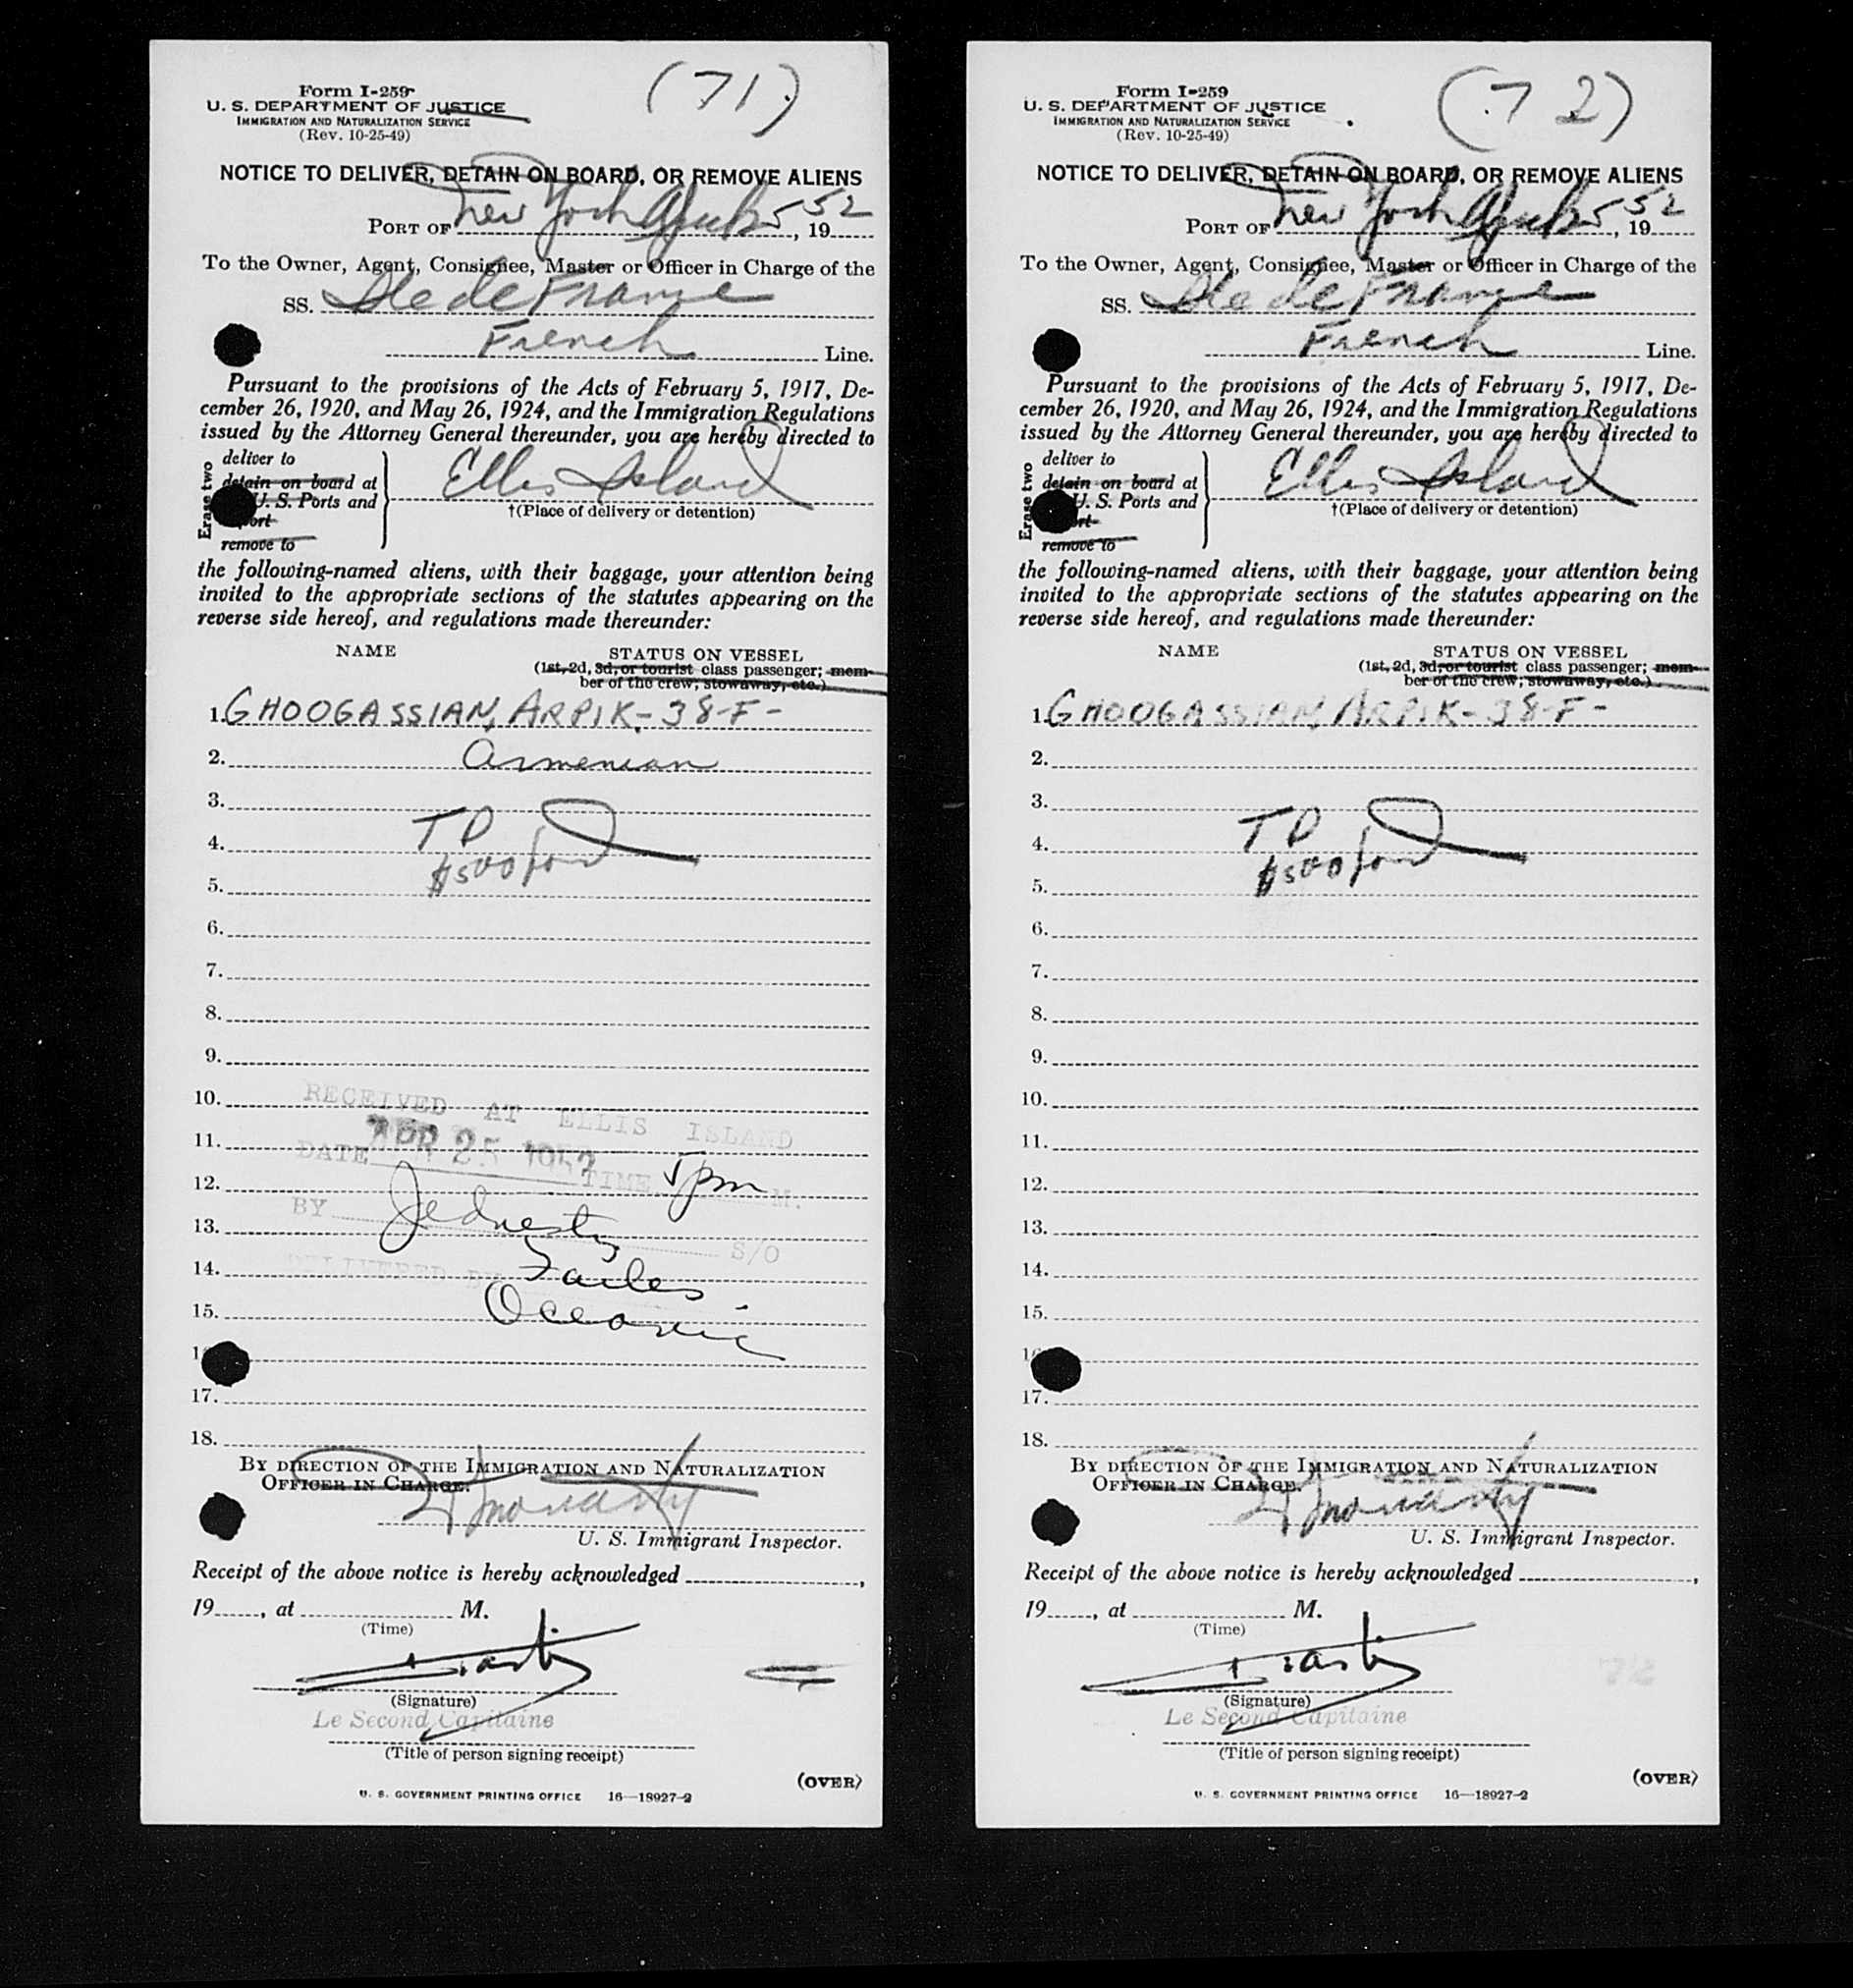 Form I-259
U. S. DEPARTMENT OF JUSTICE
IMMIGRATION AND NATURALIZATION SERVICE
(Rev. 10-25-49)
(71)
NOTICE TO DELIVER, DETAIN ON BOARD, OR REMOVE ALIENS
PORT OF New York, 1952
To the Owner, Agent, Consignee, Master or Officer in Charge of the
SS. Ile de France
French Line.
Pursuant to the provisions of the Acts of February 5, 1917, De-
cember 26, 1920, and May 26, 1924, and the Immigration Regulations
issued by the Attorney General thereunder, you are hereby directed to
Erase two
deliver to
detain on board at
U. S. Ports and
remove to
Ellis Island
†(Place of delivery or detention)
the following-named aliens, with their baggage, your attention being
invited to the appropriate sections of the statutes appearing on the
reverse side hereof, and regulations made thereunder:
NAME STATUS ON VESSEL
(1st, 2d, 3d, or tourist class passenger; mem-
ber of the crew; stowaway, etc.)
1. GHOOGASSIAN, ARPIK - 38-F-
2. Armenian
3.
4. TD
5. $500
6.
7.
8.
9.
10. RECEIVED AT ELLIS ISLAND
11. DATE APR 25 1952 TIME 5pm M.
12.
BY
13. S/O
14. DELIVERED BY
15. Oceanic
17.
18.
BY DIRECTION OF THE IMMIGRATION AND NATURALIZATION
OFFICER IN CHARGE.
U. S. Immigrant Inspector.
Receipt of the above notice is hereby acknowledged,
19, at M.
(Time)
(Signature)
Le Second Capitaine
(Title of person signing receipt)
(OVER)
U. S. GOVERNMENT PRINTING OFFICE 16—18927-2
Form I-259
U. S. DEPARTMENT OF JUSTICE
IMMIGRATION AND NATURALIZATION SERVICE
(Rev. 10-25-49)
(72)
NOTICE TO DELIVER, DETAIN ON BOARD, OR REMOVE ALIENS
PORT OF New York, 1952
To the Owner, Agent, Consignee, Master or Officer in Charge of the
SS. Ile de France
French Line.
Pursuant to the provisions of the Acts of February 5, 1917, De-
cember 26, 1920, and May 26, 1924, and the Immigration Regulations
issued by the Attorney General thereunder, you are hereby directed to
Erase two
deliver to
detain on board at
U. S. Ports and
remove to
Ellis Island
†(Place of delivery or detention)
the following-named aliens, with their baggage, your attention being
invited to the appropriate sections of the statutes appearing on the
reverse side hereof, and regulations made thereunder:
NAME STATUS ON VESSEL
(1st, 2d, 3d, or tourist class passenger; mem-
ber of the crew; stowaway, etc.)
1. GHOOGASSIAN, ARPIK - 38-F-
2.
3.
4. TD
5. $500
6.
7.
8.
9.
10.
11.
12.
13.
14.
15.
17.
18.
BY DIRECTION OF THE IMMIGRATION AND NATURALIZATION
OFFICER IN CHARGE.
U. S. Immigrant Inspector.
Receipt of the above notice is hereby acknowledged,
19, at M.
(Time)
72
(Signature)
Le Second Capitaine
(Title of person signing receipt)
(OVER)
U. S. GOVERNMENT PRINTING OFFICE 16—18927-2